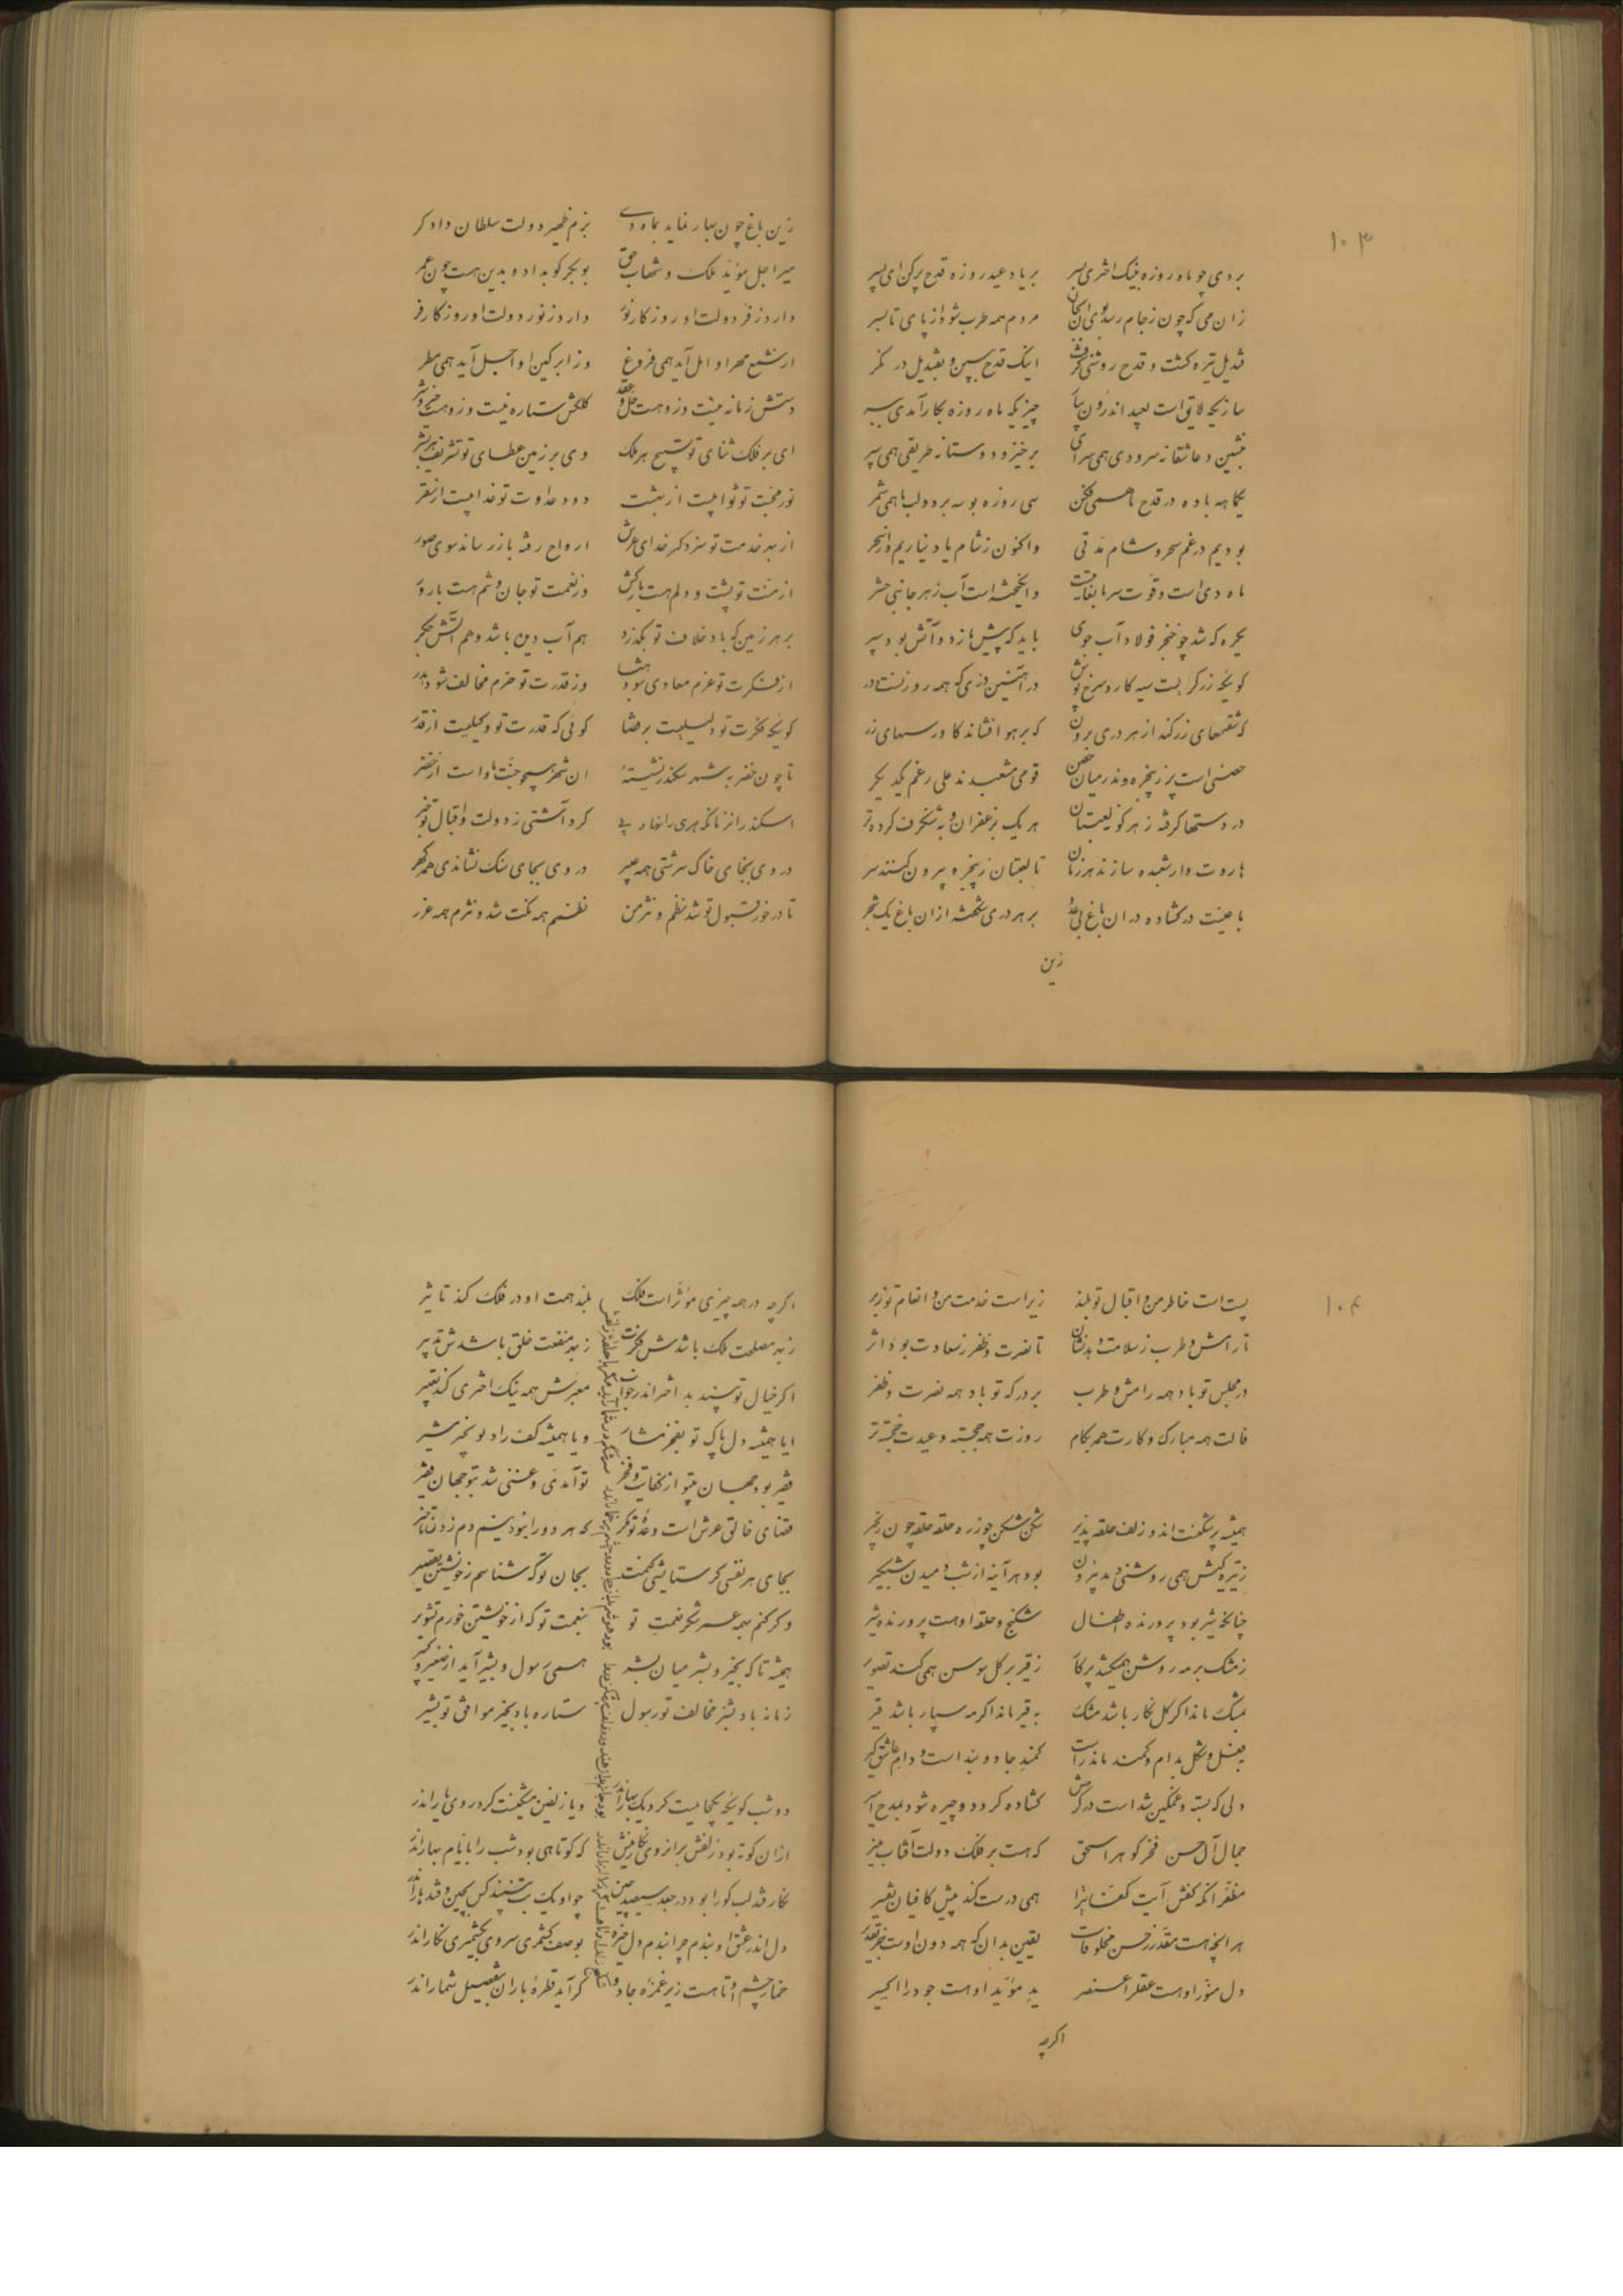 ۱۰۳
بردی چو ماه روزه بنیک اختری بسر بر یاد عید روزه قدح پر کن ای پسر
زان می که چون ز جام رسد بوی مردم همه طرب شود از پای تا بسر
قندیل تیره گشت و قدح روشنی گرفت اینک قدح ببین و بقندیل در نگر
ساز یکه لایق است بعید اندرون بیار چیزیکه ماه روزه بکار آمدی ببر
بنشین و عاشقانه سرودی همی سرای برخیز و دوستانه طریقی همی سپر
یکماهه باده در قدح ما همی فکن سی روزه بوسه بر دو لب ما همی شمر
بودیم در غم سحر و شام مدتی واکنون ز شام یاد نیاریم و از سحر
ماه دی است و قوت سرما بغایت است وانگیخته است آب ز هر جانبی حشر
یکره که شد چو خنجر فولاد آب جوی باید که پیش باز دو آتش بود سپر
گوئیکه زرگر است سیه کار و سرخ پوش در آهنین دزی که همه روزنست در
که شفشهای زر کند از هر دری برون که بر هوا فشاند کاورسهای زر
حصنی است پر ز پنجره وندر میان حصن قومی مشعبدند علی رغم یکدیگر
در دستها گرفته ز هر گونه لعبتان هر یک بزعفران و به شنگرف کرده تر
هاروت وار شعبده سازند هر زمان تا لعبتان ز پنجره بیرون کنند سر
باغیست در گشاده در ان باغ بی عدد بر هر دری شکفته از ان باغ یک شجر
زین
زین باغ چون بهار نماید بماه دی بزم ظهیر دولت سلطان دادگر
میر اجل مؤید ملک و شهاب حق بوبکر کو بداد و بدین هست چون عمر
دارد ز فر دولت او روزگار نور دارد ز نور دولت او روزگار فر
از شمع مهر او امل آید همی فروغ وز ابر کین او اجل آید همی مطر
دستش زمانه نیست وزو هست حل و عقد کلکش ستاره نیست وزو هست خیر و شر
ای بر فلک ثنای تو تسبیح هر ملک وی بر زمین عطای تو تشریف هر بشر
نور محبت تو ثوابیست از بهشت دود عداوت تو عذابیست از سقر
از بهر خدمت تو سزد گر خدای عرش ارواح رفته باز رساند سوی صور
از منت تو پشت و دلم هست بارکش وز نعمت تو جان و تنم هست بارور
بر هر زمین که باد خلاف تو بگذرد هم آب دین باشد و هم آتش جگر
از فکرت تو عزم معادی شود هبا وز قدرت تو حزم مخالف شود هدر
گوئیکه فکرت تو دلیلیست بر قضا گوئی که قدرت تو وکیلیست از قدر
تا چون خضر به شهر سکندر نشسته ان شهر همچو جنت ماوا است از خضر
اسکندر از زمانکه هری را نهاد پی کرد آشتی ز دولت و اقبال تو خبر
در وی بجای خاک سرشتی همه عبیر در وی بجای سنگ نشاندی همه گهر
تا در خور قبول تو شد نظم و نثر من نظمم همه نکت شد و نثرم همه غرر
۱۰۴
پست است خاطر من و اقبال تو بلند زیر است خدمت من و انعام تو زبر
تا رامش و طرب ز سلامت دهد نشان تا نصرت و ظفر ز سعادت بود اثر
در مجلس تو باد همه رامش و طرب بر درگه تو باد همه نصرت و ظفر
فالت همه مبارک و کارت همه بکام روزت همه خجسته و عیدت خجسته تر
همیشه پر شکنست اندو زلف حلقه پذیر شکن شکن چو زره حلقه حلقه چون زنجیر
ز تیرگیش همی روشنی دمد بیرون بود هر آینه از شب دمیدن شبگیر
چنانکه شیر بود پرورنده اطفال شکنج و حلقه او هست پرورنده شیر
ز مشک بر مه روشن همیکشد پرگار ز قیر بر گل سوسن همی کند تصویر
بمشک ماند اگر گل نگار باشد مشک به قیر ماند اگر مه سپار باشد قیر
بفعل و شکل بدام و کمند ماند راست کمند جادو بند است و دام عاشق گیر
دلی که بسته و غمگین شد است در گرهش گشاده گردد و چیره شود بمدح امیر
جمال آل حسن فخر گوهر اسحق که هست بر فلک دولت آفتاب منیر
مظفر انکه کفش آیت کفایترا همی درست کند پیش کافیان تفسیر
هر انچه هست مقدر ز حسن مخلوقات یقین بدان که همه دون اوست جز تقدیر
دل منور او هست عقل را عنصر ید مؤید او هست جود را اکسیر
اگرچه
اگرچه در همه چیزی مؤثر است فلک بلند همت او در فلک کند تاثیر
ز بهر مصلحت ملک باشدش فکرت ز بهر منفعت خلق باشدش تدبیر
اگر خیال تو بیند بد اختر اندر خواب معبرش همه نیک اختری کند تعبیر
ایا همیشه دل پاک تو بفخر مشار و یا همیشه کف راد تو بخیر مشیر
فقیر بود جهان بیتو از کفایت و فخر تو آمدی و غنی شد بتو جهان فقیر
قضای خالق عرش است وعده تو مگر که هر دو را نبود نیم دم زدن تاخیر
بجای هر نفسی گر ستایشی کنمت بجان تو که شناسم ز خویشتن تقصیر
وگر کنم بهمه عمر شکر نعمت تو بنعمت تو که از خویشتن خورم تشویر
همیشه تا که بخیر و بشر میان بشر همی رسول و بشیر آید از صغیر و کبیر
زمانه باد بشر مخالف تو رسول ستاره باد بخیر موافق تو بشیر
دو شب گوئیکه یکجا هست گرد یک بهار اندر و یا زلفین مشکینست گرد روی یار اندر
از ان کوته بود زلفش بر انروی نگارینش که کوتاهی بود شب را بایام بهار اندر
نگار قند لب کورا بود در جعد سیصد چین چو او یک بت نبیند کس بچین و قندهار اندر
دل اندر عشق او بندم چرا بندم دل خیره بوصف کشمری سروی بکشمیری نگار اندر
خمار چشم او تا هست زیر غمزه جادو گر آید قطرهٔ باران بتفصیل شمار اندر